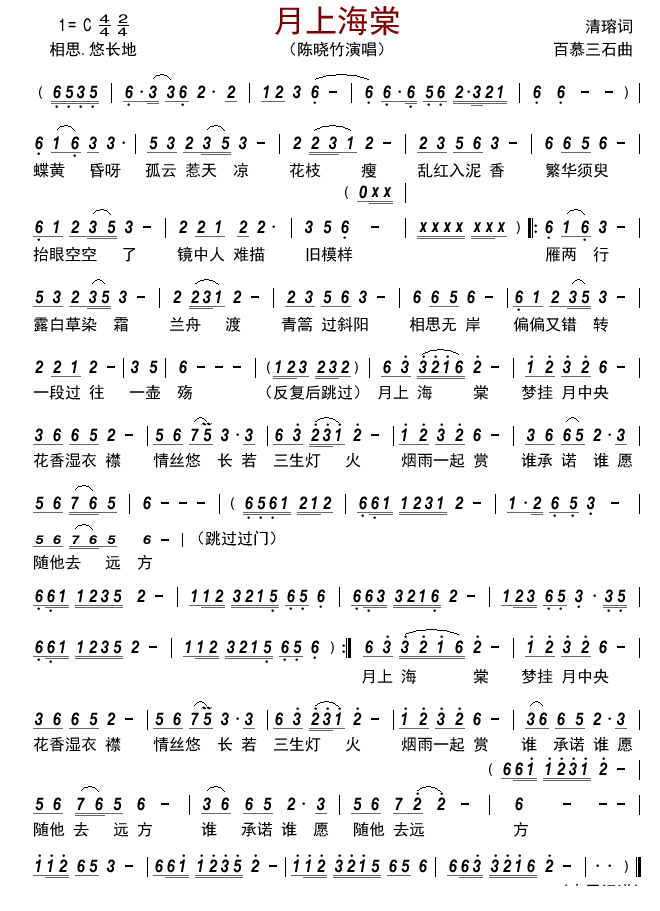 月上海棠
1= C 4/4 2/4
清瑢词
相思.悠长地
（陈晓竹演唱）
百慕三石曲
( 6535 | 6·3 36 2· 2 | 123 6 – | 6 6·6 56 2·321 | 6 6 – – ) |
6 16 3 3· | 53 2 35 3 – | 2 231 2 – | 23 56 3 – | 66 56 – |
蝶黄 昏呀 孤云 惹天 凉 花枝 瘦 乱红入泥 香 繁华须臾
( 0xx |
61 2 35 3 – | 22 1 2 2· | 35 6 – | xxxx xxx ) ‖: 6 16 3 – |
抬眼空空 了 镜中人 难描 旧模样 雁两 行
53 2 35 3 – | 2 231 2 – | 23 56 3 – | 66 56 – | 61 2 35 3 – |
露白草染 霜 兰舟 渡 青篙 过斜阳 相思无 岸 偏偏又错 转
22 1 2 – | 35 | 6 – – – | (123 232) | 63 3216 2 – | 12 32 6 – |
一段过 往 一壶 殇 （反复后跳过） 月上 海 棠 梦挂 月中央
36 65 2 – | 56 75 3·3 | 63 231 2 – | 12 32 6 – | 36 65 2·3 |
花香湿衣 襟 情丝悠 长 若 三生灯 火 烟雨一起 赏 谁承 诺 谁 愿
56 76 5 | 6 – – – | ( 6561 212 | 661 1231 2 – | 1·2 65 3 – |
56 76 5 6 – | （跳过过门）
随他去 远 方
661 1235 2 – | 112 3215 65 6 | 663 3216 2 – | 123 65 3·35 |
661 1235 2 – | 112 3215 65 6 ) :‖ 63 3216 2 – | 12 32 6 – |
月上 海 棠 梦挂 月中央
36 65 2 – | 56 75 3·3 | 63 231 2 – | 12 32 6 – | 36 65 2·3 |
花香湿衣 襟 情丝悠 长 若 三生灯 火 烟雨一起 赏 谁 承诺 谁 愿
( 661 1231 2 – |
56 76 5 6 – | 36 65 2· 3 | 56 72 2 – | 6 – – – |
随他 去 远 方 谁 承诺 谁 愿 随他 去远 方
112 65 3 – | 661 1235 2 – | 112 3215 65 6 | 663 3216 2 – | ·· ) ‖